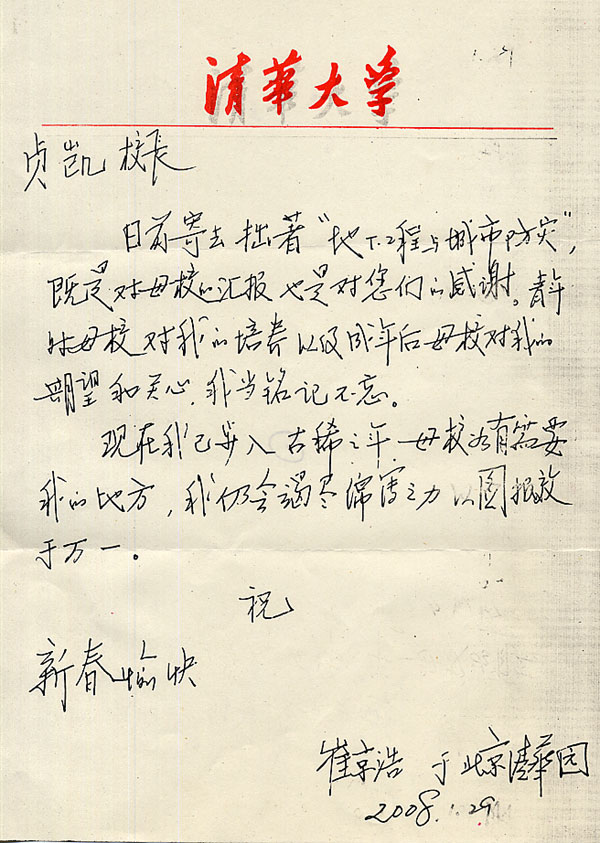 清華大学
贞凯校长
日前寄去拙著“地下工程与城市防灾”,
既是对母校的汇报也是对您们的感谢。青年
时母校对我的培养以及成年后母校对我的
期望和关心,我当铭记不忘。
现在我已步入古稀之年,母校如有需要
我的地方,我仍会竭尽绵薄之力以图报效
于万一。
祝
新春愉快
崔京浩 于北京清华园
2008.1.29